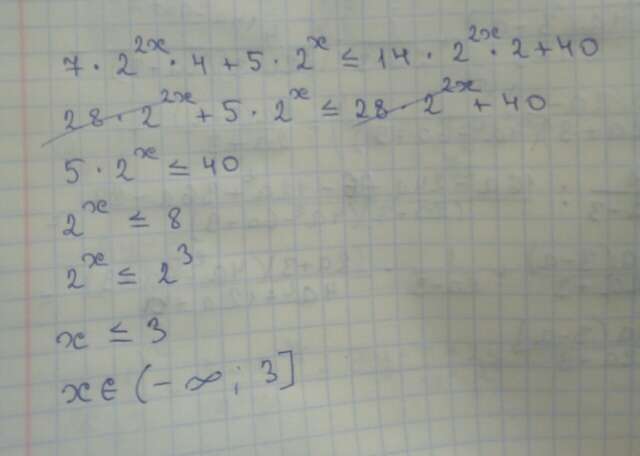 7 · 2^{2x} · 4 + 5 · 2^x ≤ 14 · 2^{2x} · 2 + 40
28 · 2^{2x} + 5 · 2^x ≤ 28 · 2^{2x} + 40
5 · 2^x ≤ 40
2^x ≤ 8
2^x ≤ 2^3
x ≤ 3
x ∈ (-∞; 3]